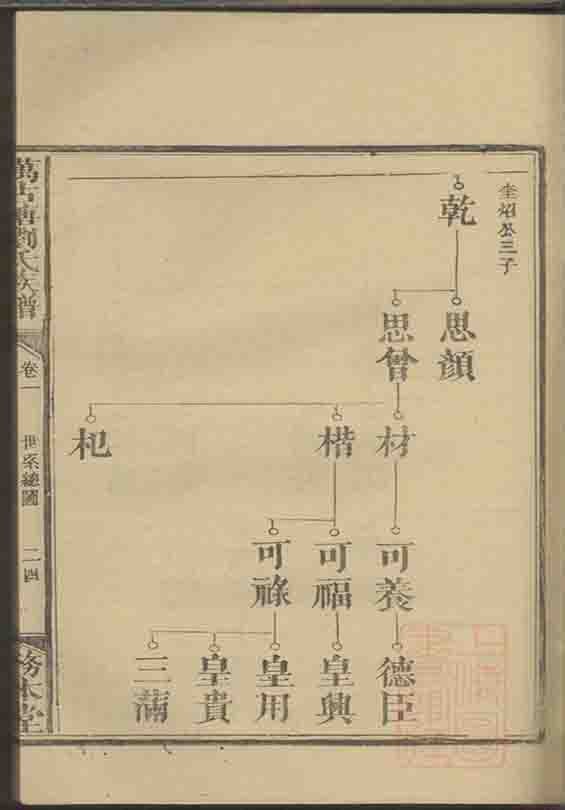 圭炤公三子
乾
思顏
思曾
材
楷
杞
可養
可福
可祿
德臣
皇興
皇用
皇貴
三滿
萬古塘劉氏族譜
卷一
世系總圖
二四
務本堂